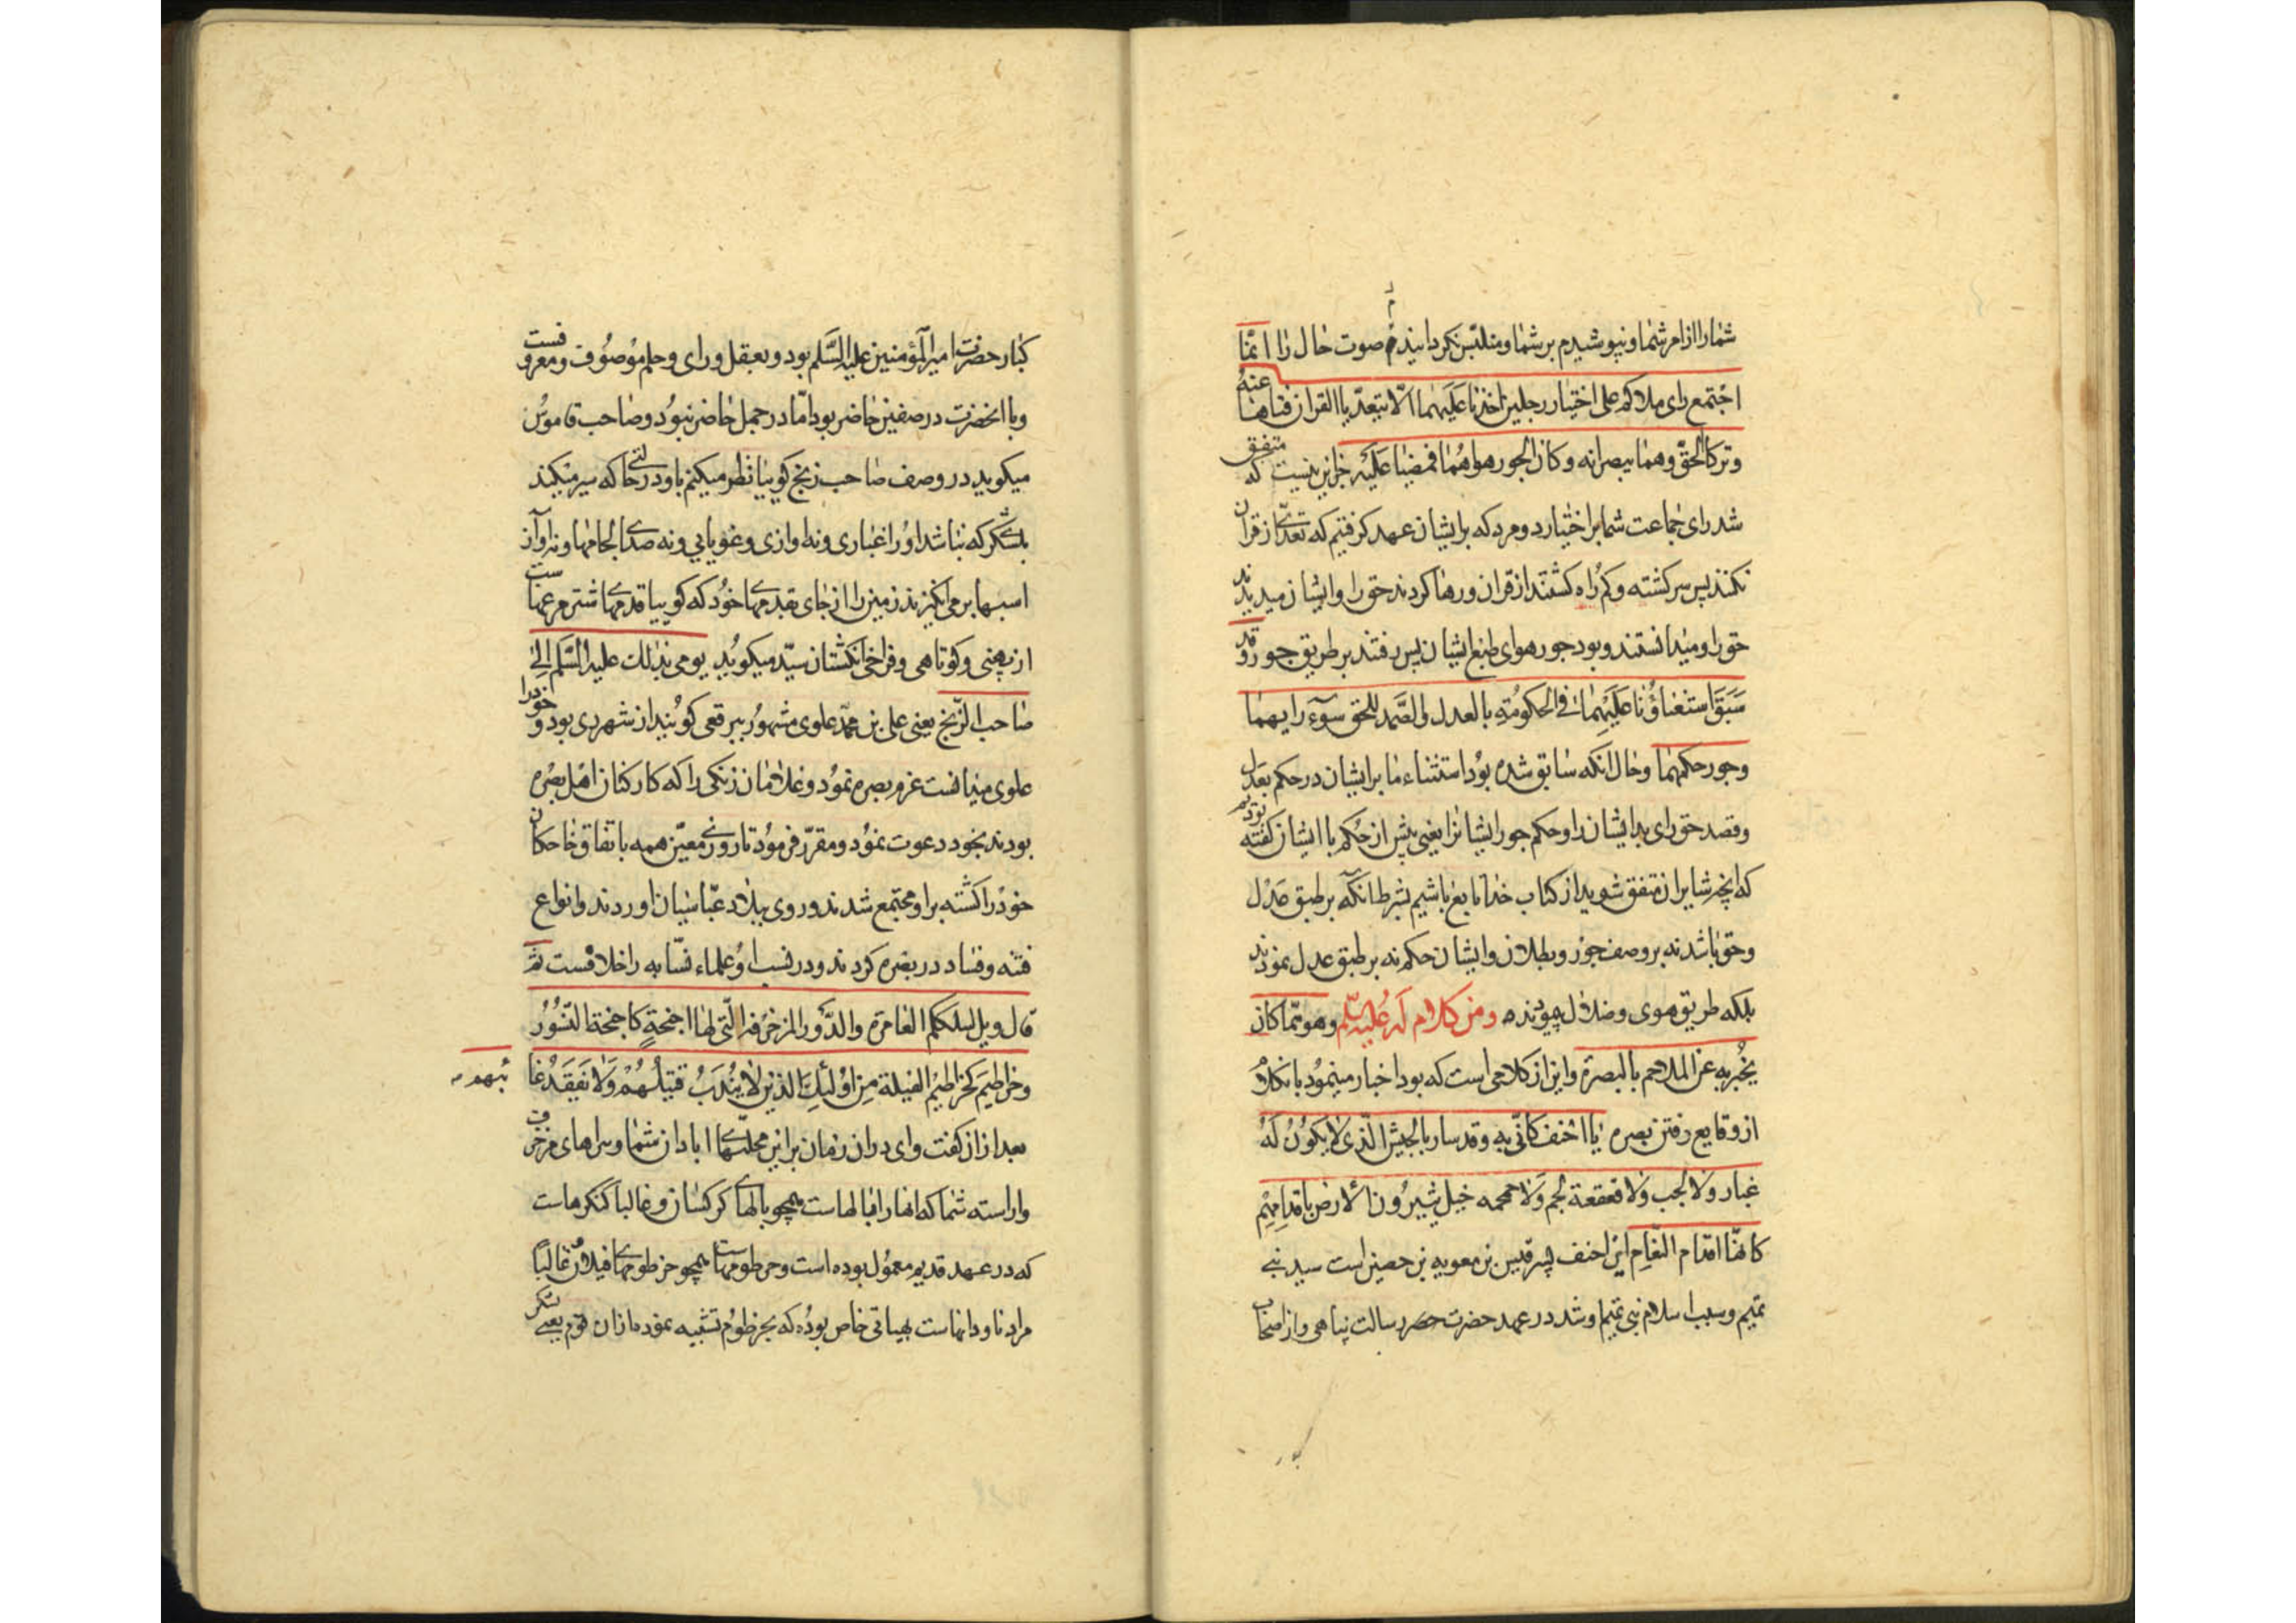 شما را از امر شما و نپوشیدم بر شما و متلبس نکردانیدم صوت حال را انما
اجتمع رای ملاکم علی اختیار رجلین اخذنا علیهما الا یتعدیا القران فتاها عنه
و ترکا الحق و هما یبصرانه و کان الجور هواهما فمضیا علیه جز این نیست که متفق
شد رای جماعت شما بر اختیار دو مرد که بر ایشان عهد کرفتیم که تعدی از قران
نکنند پس سرکشته و کم راه کشتند از قران و رها کردند حق را و ایشان میدیدند
حق را و میدانستند و بود جور هوای طبع ایشان پس رفتند بر طریق جور و قد
سبق استثناؤنا علیهما فی الحکومة بالعدل و الصمد للحق سوء رایهما
و جور حکمهما و حال انکه سابق شده بود استثناء ما بر ایشان در حکم بعدل
و قصد حق رای بد ایشان را و حکم جور ایشانرا یعنی پیش از حکم با ایشان کفته بودیم
که انچه شما بر ان متفق شوید از کتاب خدا تابع باشیم بشرط انکه بر طبق عدل
و حق باشد نه بر وصف جور و بطلان و ایشان حکم نه بر طبق عدل نمودند
بلکه طریق هوی و ضلال پیونده و من کلام له علیه السلم و هو مما کان
یخبر به عن الملاحم بالبصرة و این از کلامی است که بود اخبار مینمود بانکلام
از وقایع رفتن بصره یا احنف کانی به و قد سار بالجیش الذی لا یکون له
غبار و لا لجب و لا قعقعة لجم و لا حمحمه خیل یثیرون الارض باقدامهم
کانها اقدام النعام این احنف پسر قیس بن معویه بن حصین است سید بنی
تمیم و سبب اسلام بنی تمیم او شد در عهد حضرت حضرت رسالت پناهی و از اصحاب
کبار حضرت امیرالمؤمنین علیه السلم بود و بعقل و رای و حلم موصوف و معروفست
و با انحضرت در صفین حاضر بود اما در جمل حاضر نبود و صاحب قاموس
میکوید در وصف صاحب زنج کوییا نظر میکنم باو در حالتی که سیر میکند
بلشکر که نباشد او را غباری و نه اوازی و غوغایی و نه صدای لجامها و نه اواز
اسبها بر می انکیزند زمین را از جای بقدمهای خود که کوییا قدمهای شتر مرغهاست
از پهنی و کوتاهی و فراخی انکشتان سید میکوید یومی بذلک علیه السلم الی
صاحب الزنج یعنی علی بن محمد علوی مشهور ببرقعی کویند از شهر ری بود و خود را
علوی میدانست عزم بصره نمود و غلامان زنکی را که کارکنان اهل بصره
بودند بخود دعوت نمود و مقرر فرمود تا روزی معین همه باتفاق خاجکان
خود را کشته بر او مجتمع شدند و روی ببلاد عباسیان اوردند و انواع
فتنه و فساد در بصره کردند و در نسب او علماء نسابه را خلافست ثم
قال ویل لسلککم العامرة و الدور المزخرفة التی لها اجنحة کاجنحة النسور
و خراطیم کخراطیم الفیلة من اولئک الذین لا یندب قتیلهم و لا یفقد غا
ئبهم
بعد از ان کفت وای در ان زمان بر این محلتهای ابادان شما و سراهای مزخرف
و اراسته شما که انها را بالهاست همچو بالهای کرکسان و غالبا کنکرهاست
که در عهد قدیم معمول بوده است و خرطومهاست همچو خرطومهای فیلان غالبا
مراد ناودانهاست بهیاتی خاص بوده که بخرطوم تشبیه نموده از ان قوم یعنی لشکر